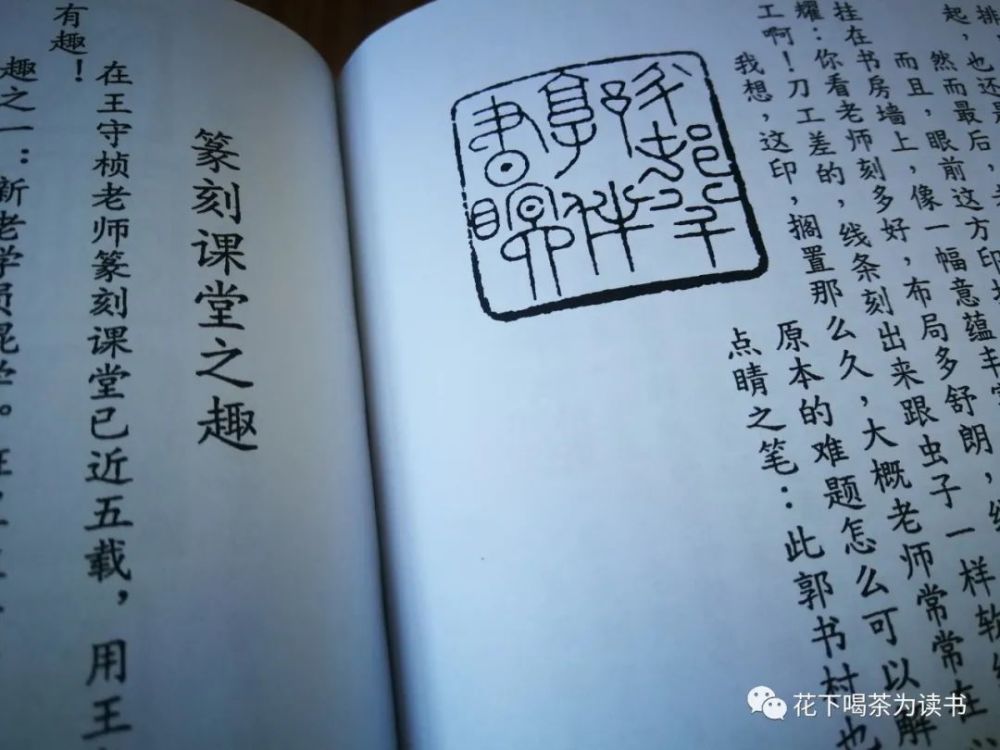 排
起，也还是
然而最后，老
而且，眼前这方印
挂在书房墙上，像一幅意蕴丰
耀：你看老师刻多好，布局多舒朗，线
工啊！刀工差的，线条刻出来跟虫子一样软
我想，这印，搁置那么久，大概老师常常在
原本的难题怎么可以解
点睛之笔：此郭书村也
篆刻课堂之趣
在王守桢老师篆刻课堂已近五载，用王
有趣！
趣之一：新老学员混学。
花下喝茶为读书